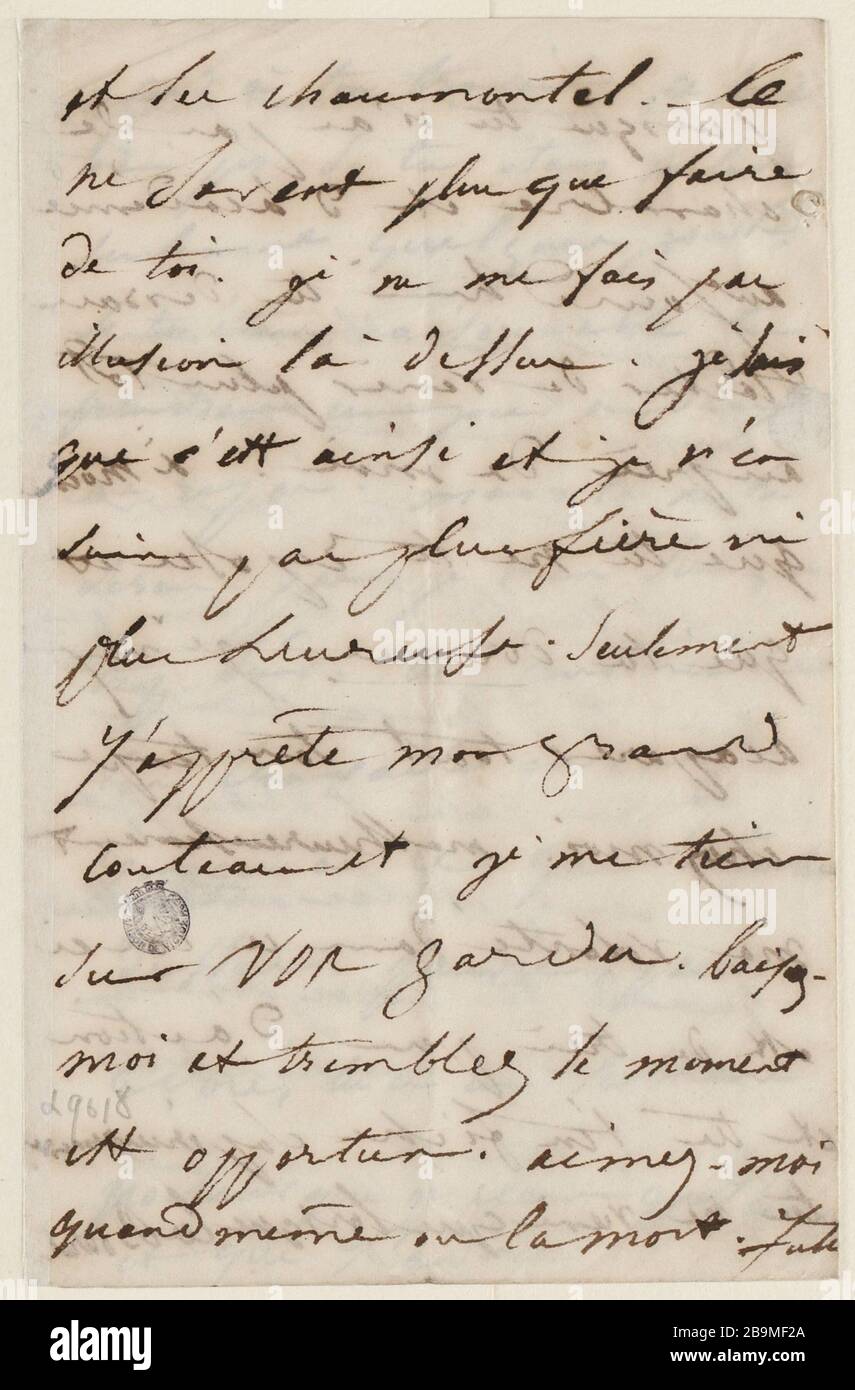 et les chaumontel. Ce
ne savent plus que faire
de toi. je ne me fais pas
illusion là dessus. je sais
que c'est ainsi et je n'en
suis pas plus fière ni
plus heureuse. Seulement
J'apprête mon grand
couteau et je me tiens
sur VOS gardes. baisez-
moi et tremblez le moment
est opportun. aimez-moi
quand même ou la mort. Juliette
29018
alamy
Image ID: 2B9MF2A
www.alamy.com